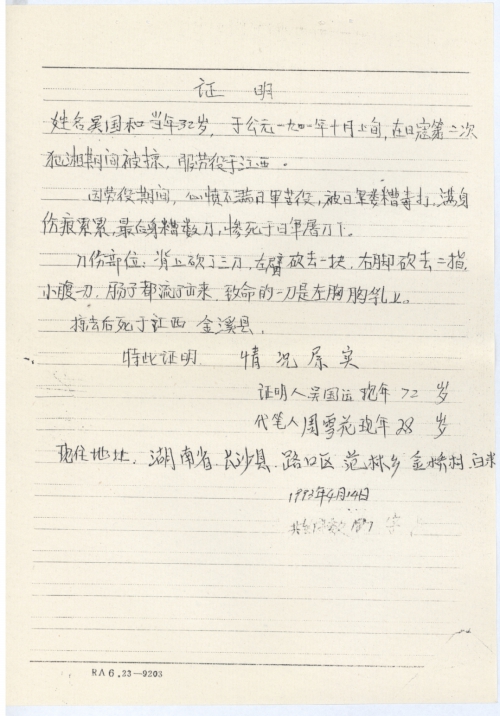 证 明
姓名吴国和 当年32岁, 于公元一九四一年十月上旬, 在日寇第二次
犯湘期间被掠, 服劳役于江西。
因劳役期间, 心愤不满日军苦役, 被日军娄糟毒打, 满身
伤痕累累, 最后身糟数刀, 惨死于日军屠刀下。
刀伤部位: 背上砍了三刀, 左臂砍去一块, 右脚砍去二指,
小腹一刀, 肠子都流了出来, 致命的一刀是左胸胸乳上。
掠去后死于江西 金溪县.
特此证明 情况属实
证明人吴国 现年 72 岁
代笔人周雪花现年28 岁
现住地址, 湖南省 长沙县 路口区 范林乡 金桥村 白米
1993年4月14日
RA6.23—9203